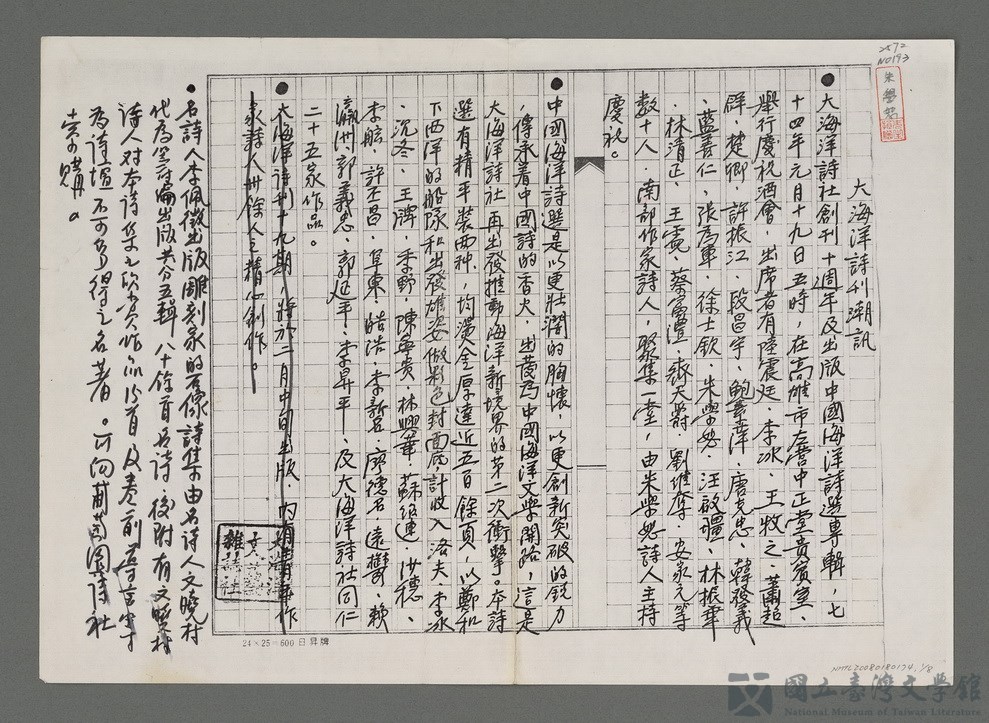 2572
NO193
朱學恕
大海洋詩刊潮訊
●大海洋詩社創刊十週年及出版中國海洋詩選專輯，七
十四年元月十九日五時，在高雄市左營中正堂貴賓室、
舉行慶祝酒會，出席者有陸震廷、李冰、王牧之、蕭超
群、楚卿、許振江、段昌宇、鮑霽、唐克忠、韓發義
、藍善仁、張為軍、徐士欽、朱學恕、汪啟疆、林振華
、林清正、王寬、蔡富澧、齊天爵、劉維摩、安永元等
數十人，南部作家詩人，聚集一堂，由朱學恕詩人主持
慶祝。
●中國海洋詩選是以更壯濶的胸懷，以更創新突破的銳力
，傳承着中國詩的香火，出發為中國海洋文學開路，這是
大海洋詩社再出發推動海洋新境界的第二次衝擊。本詩
選有精平裝兩種，均燙金厚達近五百餘頁，以鄭和
下西洋的船隊和出發雄姿做彩色封面底，計收入洛夫、李冰
、沉冬、王潤、季野、陳寧貴、林興華、蘇紹連、汪德、
李舷、許丕昌、阜東、皓浩、李新名、廖德名、遠鬱、賴
瀛洲、郭義忠、郭延平、李昇平、及大海洋詩社同仁
二十五家作品。
●大海洋詩刊十九期，將於二月中旬出版，內有菁華作
家詩人卅餘人之精心創作。
●名詩人李佩徵出版雕刻家的石像詩集由名詩人文曉村
代為審編出版共分五輯，八十餘首名詩後附有文曉村
詩人對本詩集之欣賞作品四首及卷前導言等
為詩壇不可多得之名著。可向葡萄園詩社
索購。
雜誌社
24×25=600 日昇牌
NMTL20080180174, 1/8
國立臺灣文學館
National Museum of Taiwan Literature